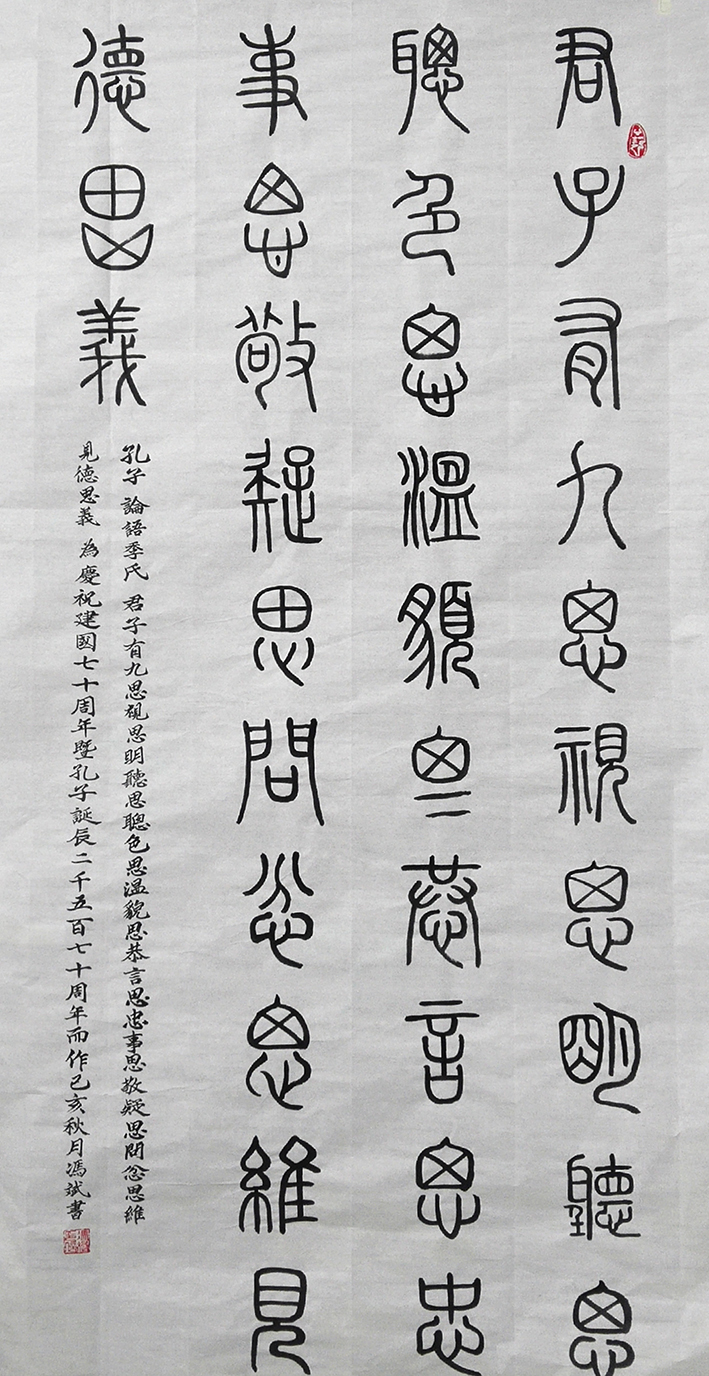 君子有九思視思明聽思
聰色思溫貌思恭言思忠
事思敬疑思問忿思維見
德思義
孔子 論語季氏 君子有九思視思明聽思聰色思温貌思恭言思忠事思敬疑思問忿思維
見德思義 為慶祝建國七十周年暨孔子誕辰二千五百七十周年而作己亥秋月馮斌書